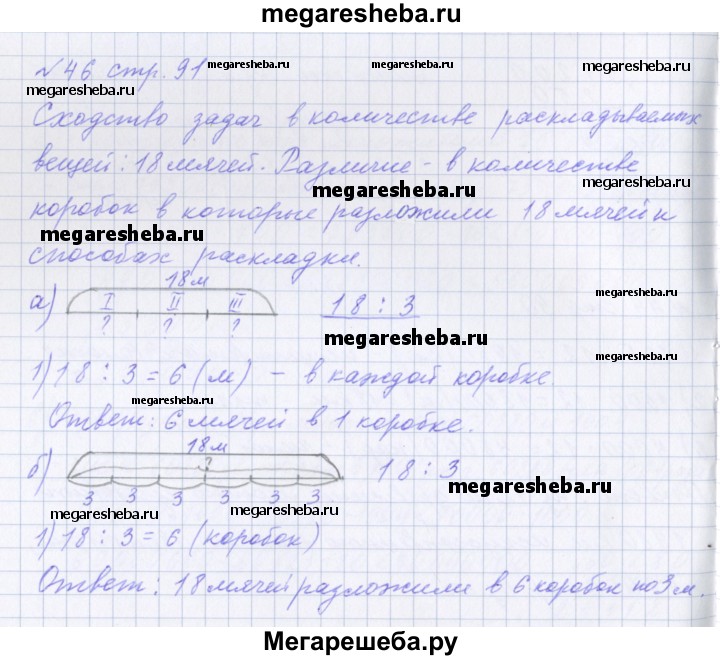 megaresheba.ru
№ 46 стр. 91 megaresheba.ru megaresheba.ru megaresheba.ru
megaresheba.ru
Сходство задач в количестве раскладываемых
вещей: 18 мячей. Различие - в количестве
megaresheba.ru megaresheba.ru
коробок в которые разложили 18 мячей и
megaresheba.ru
способах раскладки.
18м
а) I II III 18 : 3
? ? ?
megaresheba.ru
megaresheba.ru
megaresheba.ru
1) 18 : 3 = 6 (м) - в каждой коробке.
megaresheba.ru
Ответ: 6 мячей в 1 коробке.
18м
б) ? 18 : 3
3 3 3 3 3 3
megaresheba.ru
megaresheba.ru megaresheba.ru
1) 18 : 3 = 6 (коробок)
megaresheba.ru
Ответ: 18 мячей разложили в 6 коробок по 3 м.
megaresheba.ru megaresheba.ru
Мегарешеба.ру